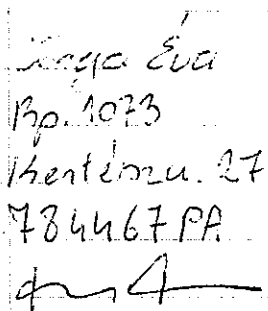 Éva
Bp. 1073
Kertész u. 27
784467 PA